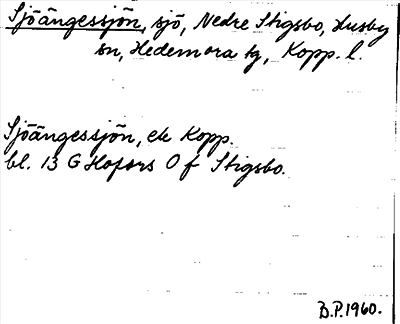 Sjöängessjön, sjö, Nedre Stigsbo, Husby
sn, Hedemora tg, Kopp. l.
Sjöängessjön, ek Kopp.
bl. 13 G Hofors O f Stigsbo.
B.P. 1960.